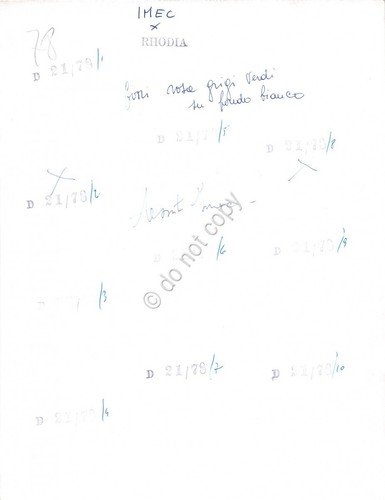 IMEC
x
RHODIA
78
D 21/78/1
fiori rosa grigi verdi
su fondo bianco
D 21/78/5
D 21/78/8
D 21/78/2
D 21/78/6
D 21/78/9
/3
© do not copy
D 21/78/7
D 21/78/10
D 21/78/4